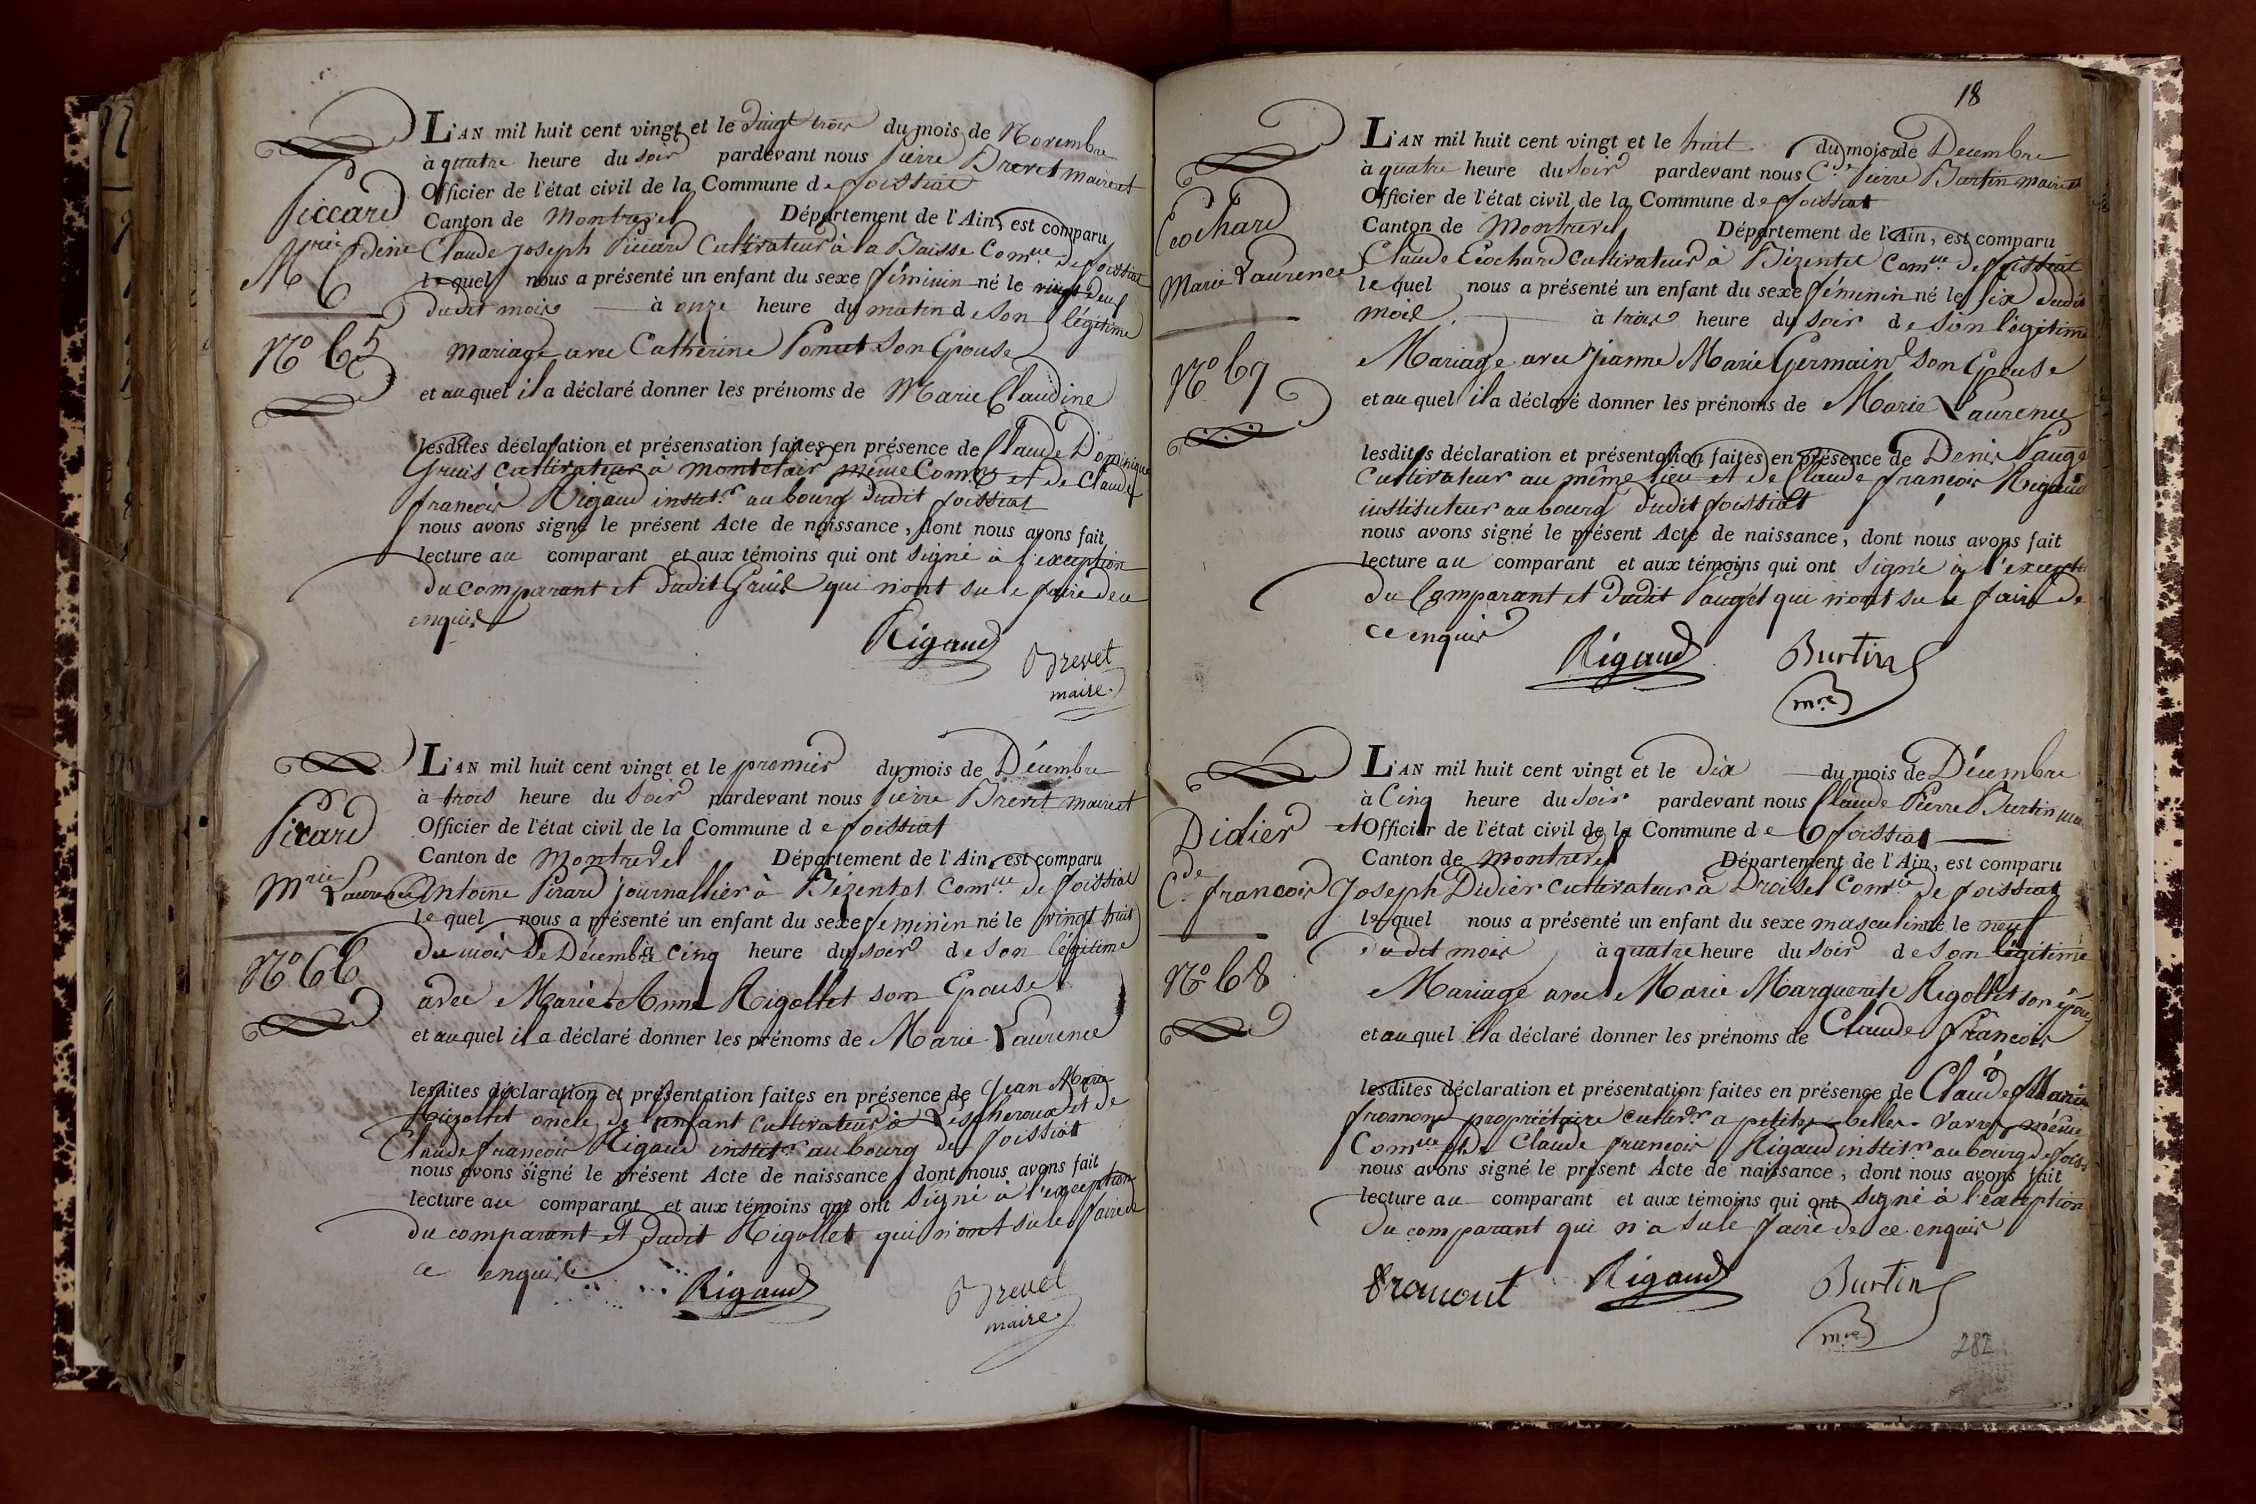 Piccard
Mrie Cdine
No 65
L'AN mil huit cent vingt et le vingt trois du mois de Novembre
à quatre heure du soir pardevant nous Pierre Brevet maire et
Officier de l'état civil de la Commune de foissiat
Canton de Montrevel Département de l'Ain, est comparu
Claude Joseph Piccard Cultivateur à la Baisse Comune de foissiat
lequel nous a présenté un enfant du sexe féminin né le vingt deux
dudit mois à onze heure du matin de son légitime
mariage avec Catherine Poncet son Epouse
et auquel il a déclaré donner les prénoms de Marie Claudine
lesdites déclaration et présensation faites en présence de Claude Dominique
Gruis cultivateur à montclair même Comne et de Claude
françois Rigaud institr au bourg dudit foissiat
nous avons signé le présent Acte de naissance, dont nous avons fait
lecture au comparant et aux témoins qui ont signé à l'exception
du comparant et dudit Gruis qui n'ont su le faire de ce
enquis
Rigaud
Brevet
maire
Picard
Mrie Laurence
No 66
L'AN mil huit cent vingt et le premier du mois de Décembre
à trois heure du soir pardevant nous Pierre Brevet maire et
Officier de l'état civil de la Commune de foissiat
Canton de Montrevel Département de l'Ain, est comparu
Antoine Picard journallier à Bézentet Comune de foissiat
lequel nous a présenté un enfant du sexe féminin né le vingt huit
du mois de Décembre à cinq heure du soir de son légitime
avec Marie Anne Rigollet son Epouse
et auquel il a déclaré donner les prénoms de Marie Laurence
lesdites déclaration et présentation faites en présence de Jean Marie
Rigollet oncle de l'enfant cultivateur à Lescheroux et de
Claude françois Rigaud institr au bourg de foissiat
nous avons signé le présent Acte de naissance, dont nous avons fait
lecture au comparant et aux témoins qui ont signé à l'exception
du comparant et dudit Rigollet qui n'ont su le faire de
ce enquis
Rigaud
Brevet
maire
18
Ecochard
Marie Laurence
No 67
L'AN mil huit cent vingt et le huit du mois de Décembre
à quatre heure du soir pardevant nous Cde Pierre Burtin maire et
Officier de l'état civil de la Commune de foissiat
Canton de Montrevel Département de l'Ain, est comparu
Claude Ecochard cultivateur à Bézentet Comune de foissiat
lequel nous a présenté un enfant du sexe féminin né le six dudit
mois à trois heure du soir de son légitime
Mariage avec Jeanne Marie Germain son Epouse
et auquel il a déclaré donner les prénoms de Marie Laurence
lesdites déclaration et présentation faites en présence de Denis Pauget
cultivateur au même lieu et de Claude françois Rigaud
instituteur au bourg dudit foissiat
nous avons signé le présent Acte de naissance, dont nous avons fait
lecture au comparant et aux témoins qui ont signé à l'exception
du Comparant et dudit Pauget qui n'ont su le faire de
ce enquis
Rigaud
Burtin
mre
Didier
Cde françois
No 68
L'AN mil huit cent vingt et le dix du mois de Décembre
à Cinq heure du soir pardevant nous Claude Pierre Burtin maire
et Officier de l'état civil de la Commune de foissiat
Canton de Montrevel Département de l'Ain, est comparu
Joseph Didier cultivateur à Droise Comune de foissiat
lequel nous a présenté un enfant du sexe masculin né le neuf
dudit mois à quatre heure du soir de son légitime
Mariage avec Marie Marguerite Rigollet son épouse
et auquel il a déclaré donner les prénoms de Claude françois
lesdites déclaration et présentation faites en présence de Claude Marie
fromont propriétaire cultivr a petites belles-varres même
Comune et de Claude françois Rigaud institr au bourg de foissiat
nous avons signé le présent Acte de naissance, dont nous avons fait
lecture au comparant et aux témoins qui ont signé à l'exception
du comparant qui n'a su le faire de ce enquis
fromont
Rigaud
Burtin
mre
282